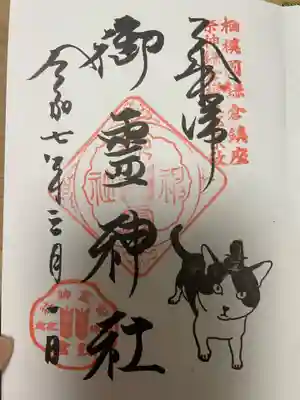 相模国鎌倉鎮座
奉拝
御霊神社
令和七年十二月一日